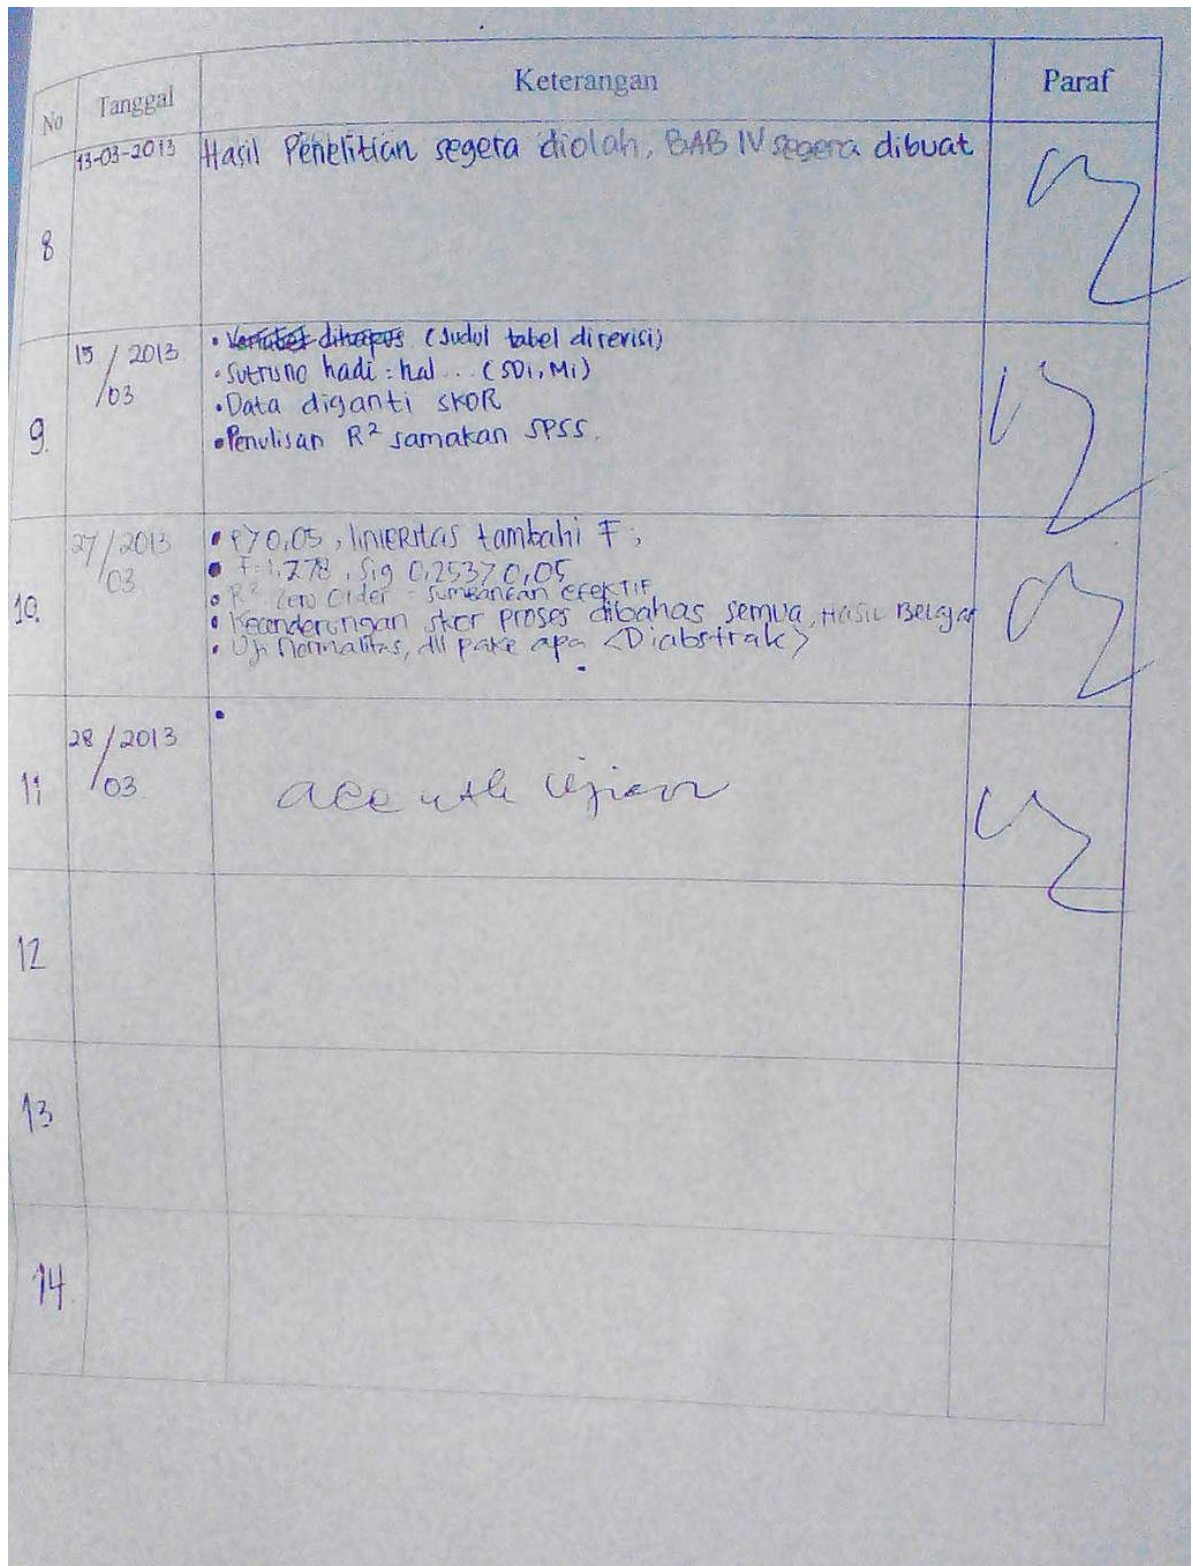 No Tanggal Keterangan Paraf
13-03-2013 Hasil Penelitian segera diolah, BAB IV segera dibuat
8
15/03 2013 • Variabel dihapus (Judul tabel direvisi)
• Sutrisno hadi : hal ... (SDi, Mi)
• Data diganti SKOR
9. • Penulisan R² samakan SPSS.
27/03 2013 • P>0,05, linieritas tambahi F;
• F=1,278, Sig 0,253>0,05
• R² Zero Order = Sumbangan EFEKTIF
10. • Kecenderungan skor proses dibahas semua, Hasil Belajar
• Uji Normalitas, dll pake apa <Diabstrak>
28/03 2013 •
11 acc utk Ujian
12
13
14